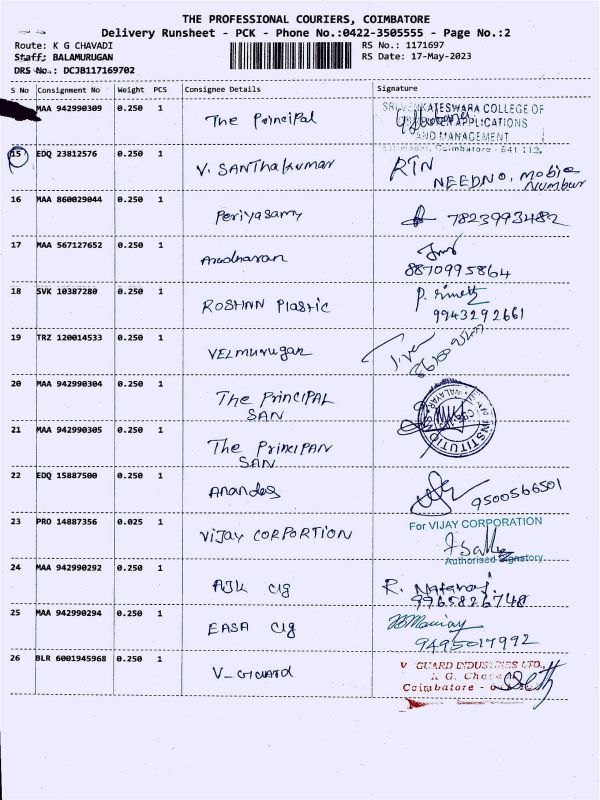 THE PROFESSIONAL COURIERS, COIMBATORE
Delivery Runsheet - PCK - Phone No.:0422-3505555 - Page No.:2
Route: K G CHAVADI
RS No.: 1171697
Staff: BALAMURUGAN
RS Date: 17-May-2023
DRS No.: DCJB117169702
S No Consignment No Weight PCS Consignee Details Signature
MAA 942990309 0.250 1 The Principal
SRI VENKATESWARA COLLEGE OF
COMPUTER APPLICATIONS
AND MANAGEMENT
Coimbatore - 641 112.
15 EDQ 23812576 0.250 1 V. SANThakumar RTN
NEEDNO. mobie
Numbur
16 MAA 860029044 0.250 1 Periyasamy 7823993482
17 MAA 567127652 0.250 1
8870995864
18 SVK 10387280 0.250 1 ROSHAN Plastic
9943292661
19 TRZ 120014533 0.250 1 VELMURUgan
20 MAA 942990304 0.250 1 The PrincipAL
SAN
21 MAA 942990305 0.250 1 The PrincipAN
SAN
INSTITUTIO
22 EDQ 15887500 0.250 1 9500566501
23 PRO 14887356 0.025 1 VIJAY CORPORTION
For VIJAY CORPORATION
Authorised Signatory
24 MAA 942990292 0.250 1 AJK clg R. Nataraj.
9965826748
25 MAA 942990294 0.250 1 EASA clg
9495017992
26 BLR 6001945968 0.250 1 V-Guard
V GUARD INDUSTRIES LTD.,
K G. Chavadi
Coimbatore -